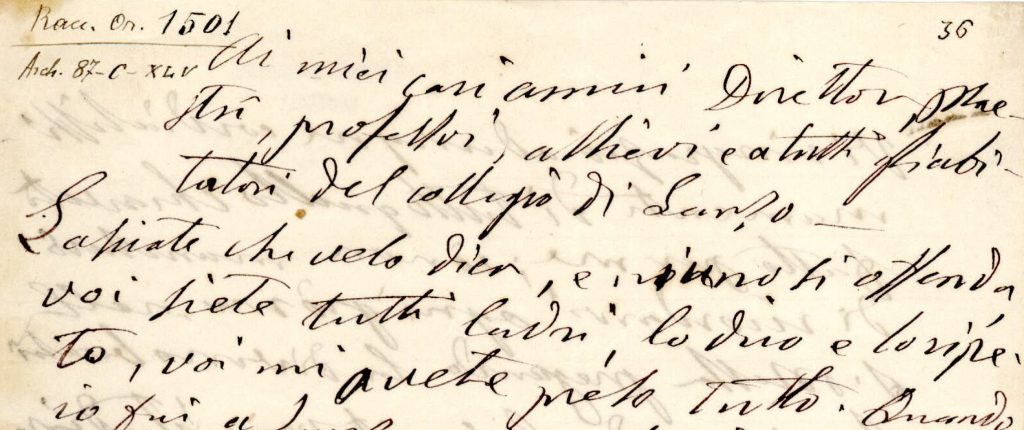 Racc. Or. 1501
36
Arch. 87-C-XLV
Ai miei cari amici Direttor, mae-
stri, professori, allievi e a tutti gli abi-
tatori del collegio di Lanzo
Sapiate che ve lo dico, e niuno si offenda,
voi siete tutti ladri, lo dico e lo ripe-
to, voi mi avete preso tutto. Quando
io fui a